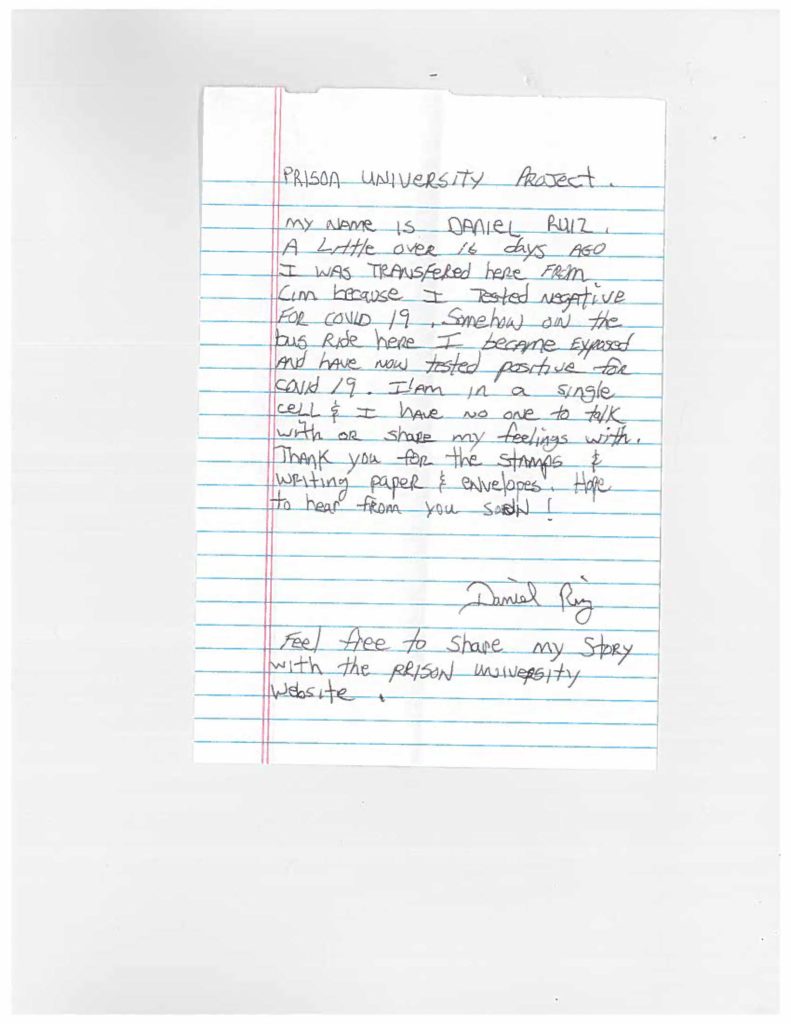 PRISON UNIVERSITY PROJECT.
MY NAME IS DANIEL RUIZ.
A Little over 16 days AGO
I WAS TRANSFERED here FROM
Cim because I Tested NEGATIVE
FOR COVID 19. Somehow ON the
bus Ride here I became Exposed
AND have NOW tested positive for
COVID 19. I'am in a single
cell & I have no one to talk
with or share my feelings with.
Thank you for the STAMPS &
writing paper & envelopes. Hope
to hear from you SOON!
Daniel Ruiz
Feel free to share my Story
with the PRISON UNIVERSITY
Website.